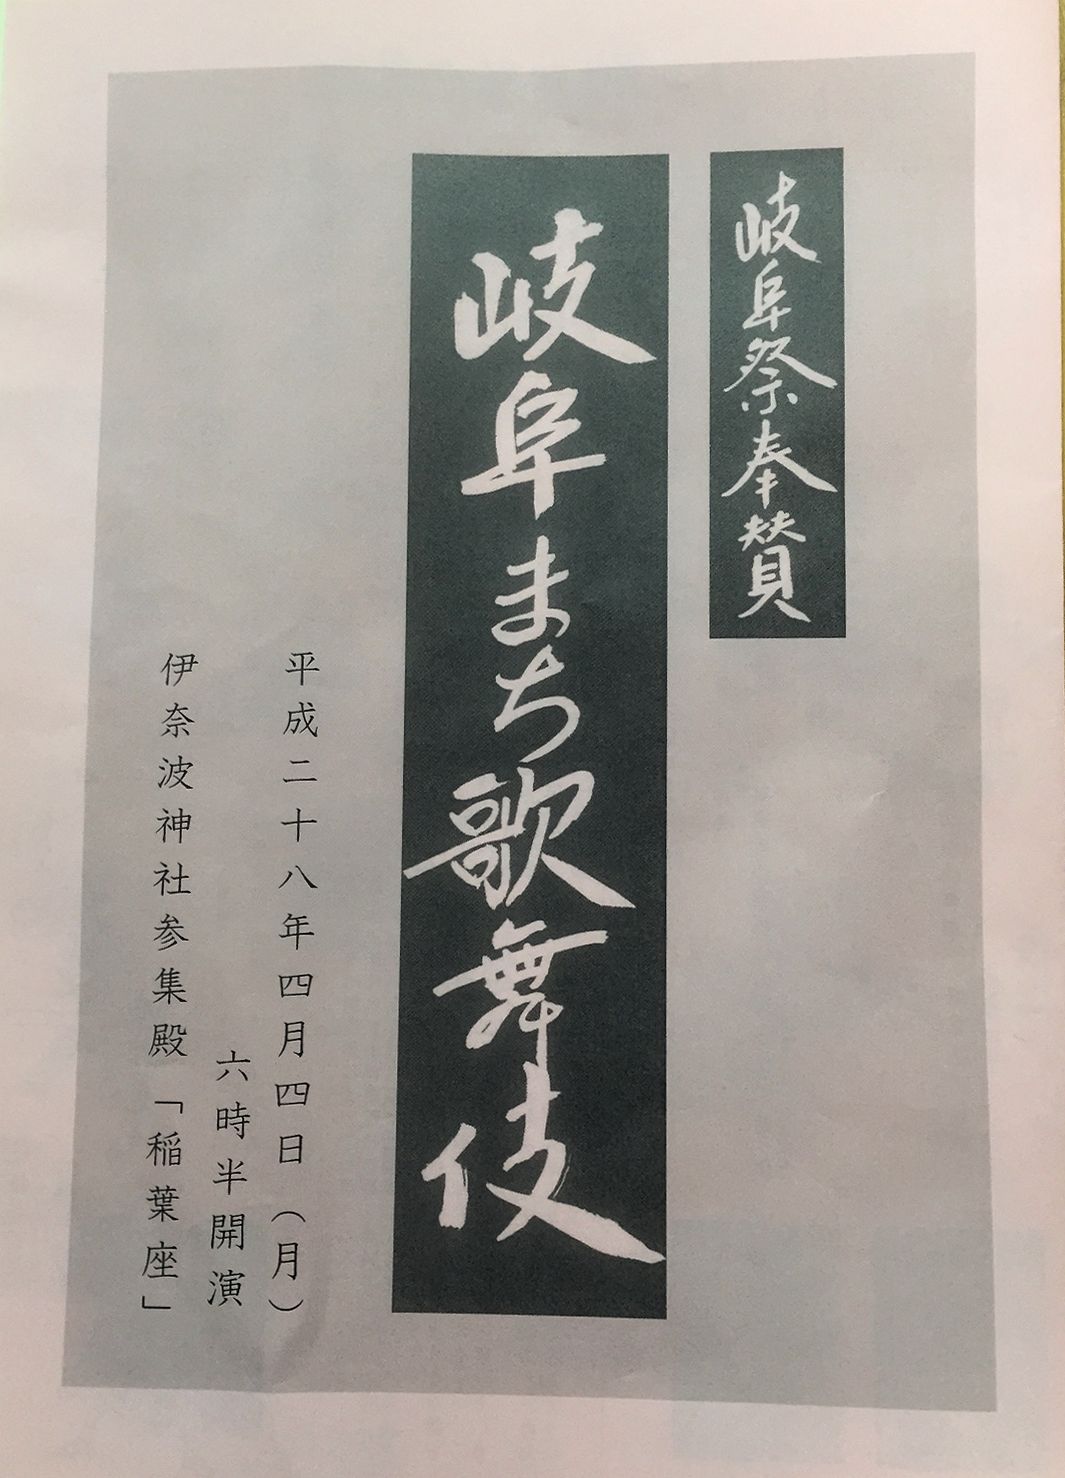 岐阜祭奉賛
岐阜まち歌舞伎
平成二十八年四月四日（月）
六時半開演
伊奈波神社参集殿「稲葉座」